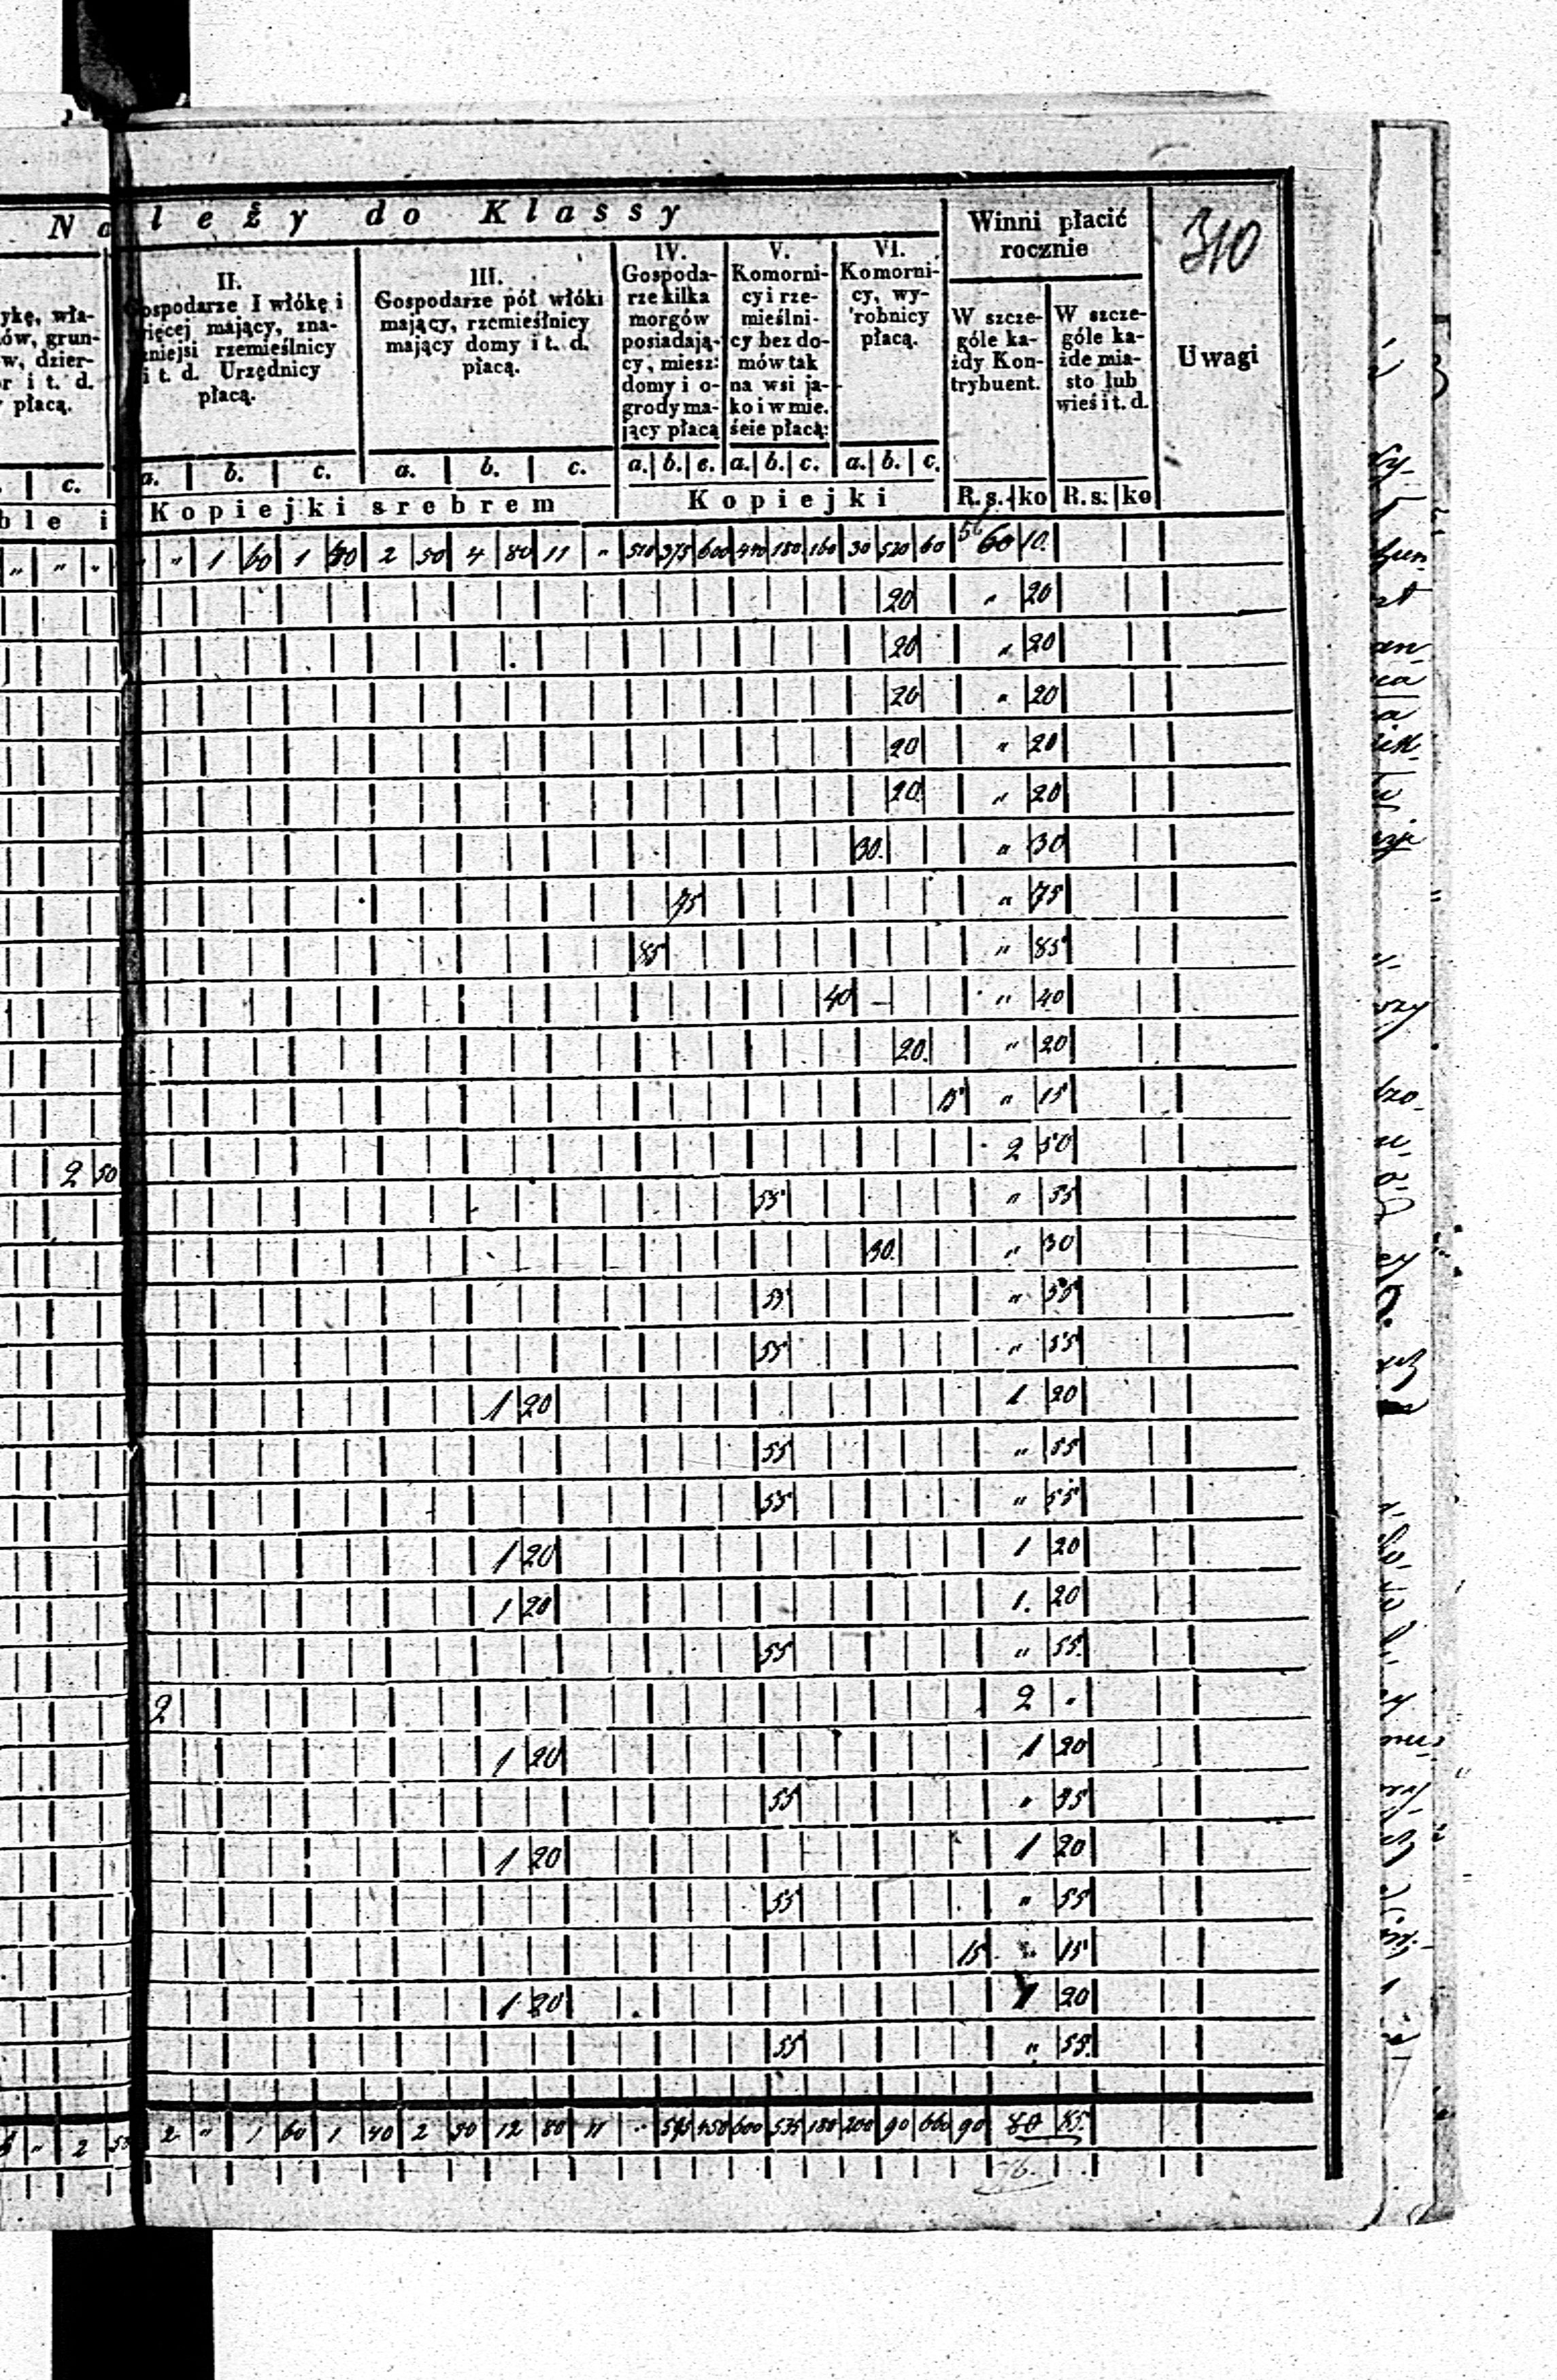 Należy do Klassy
Winni płacić rocznie
310
ykę, wła-
ów, grun-
w, dzier-
r i t. d.
płacą.
II.
ospodarze I włókę i
ięcej mający, zna-
zniejsi rzemieślnicy
i t. d. Urzędnicy
płacą.
III.
Gospodarze pół włóki
mający, rzemieślnicy
mający domy i t. d.
płacą.
IV.
Gospoda-
rze kilka
morgów
posiadają-
cy, miesz:
domy i o-
grody ma-
jący płacą
V.
Komorni-
cy i rze-
mieślni-
cy bez do-
mów tak
na wsi ja-
ko i w mie.
ście płacą:
VI.
Komorni-
cy, wy-
robnicy
płacą.
W szcze-
góle ka-
żdy Kon-
trybuent.
W szcze-
góle ka-
żde mia-
sto lub
wieś i t. d.
Uwagi
c. a. b. c. a. b. c. a. b. c. a. b. c. a. b. c.
ble i Kopiejki srebrem Kopiejki R.s. ko R.s: ko
" " " " " 1 60 1 40 2 50 4 80 11 " 510 375 600 440 180 160 30 520 60 56 60 10.
20 " 20
20 " 20
20 " 20
20 " 20
20 " 20
30. " 30
75 " 75
85 " 85
40 " 40
20. " 20
15 " 15
2 50 2 50
55 " 55
30. " 30
55 " 55
55 " 55
1 20 1. 20
55 " 55
55 " 55
1 20 1 20
1 20 1. 20
55 " 55.
2 2 "
1 20 1 20
55 " 55
1 20 1 20
55 " 55
15 " 15
1 20 1 20
55 " 55.
" 2 50 2 " 1 60 1 40 2 50 12 80 11 " 595 450 600 200 90 660 90 85.